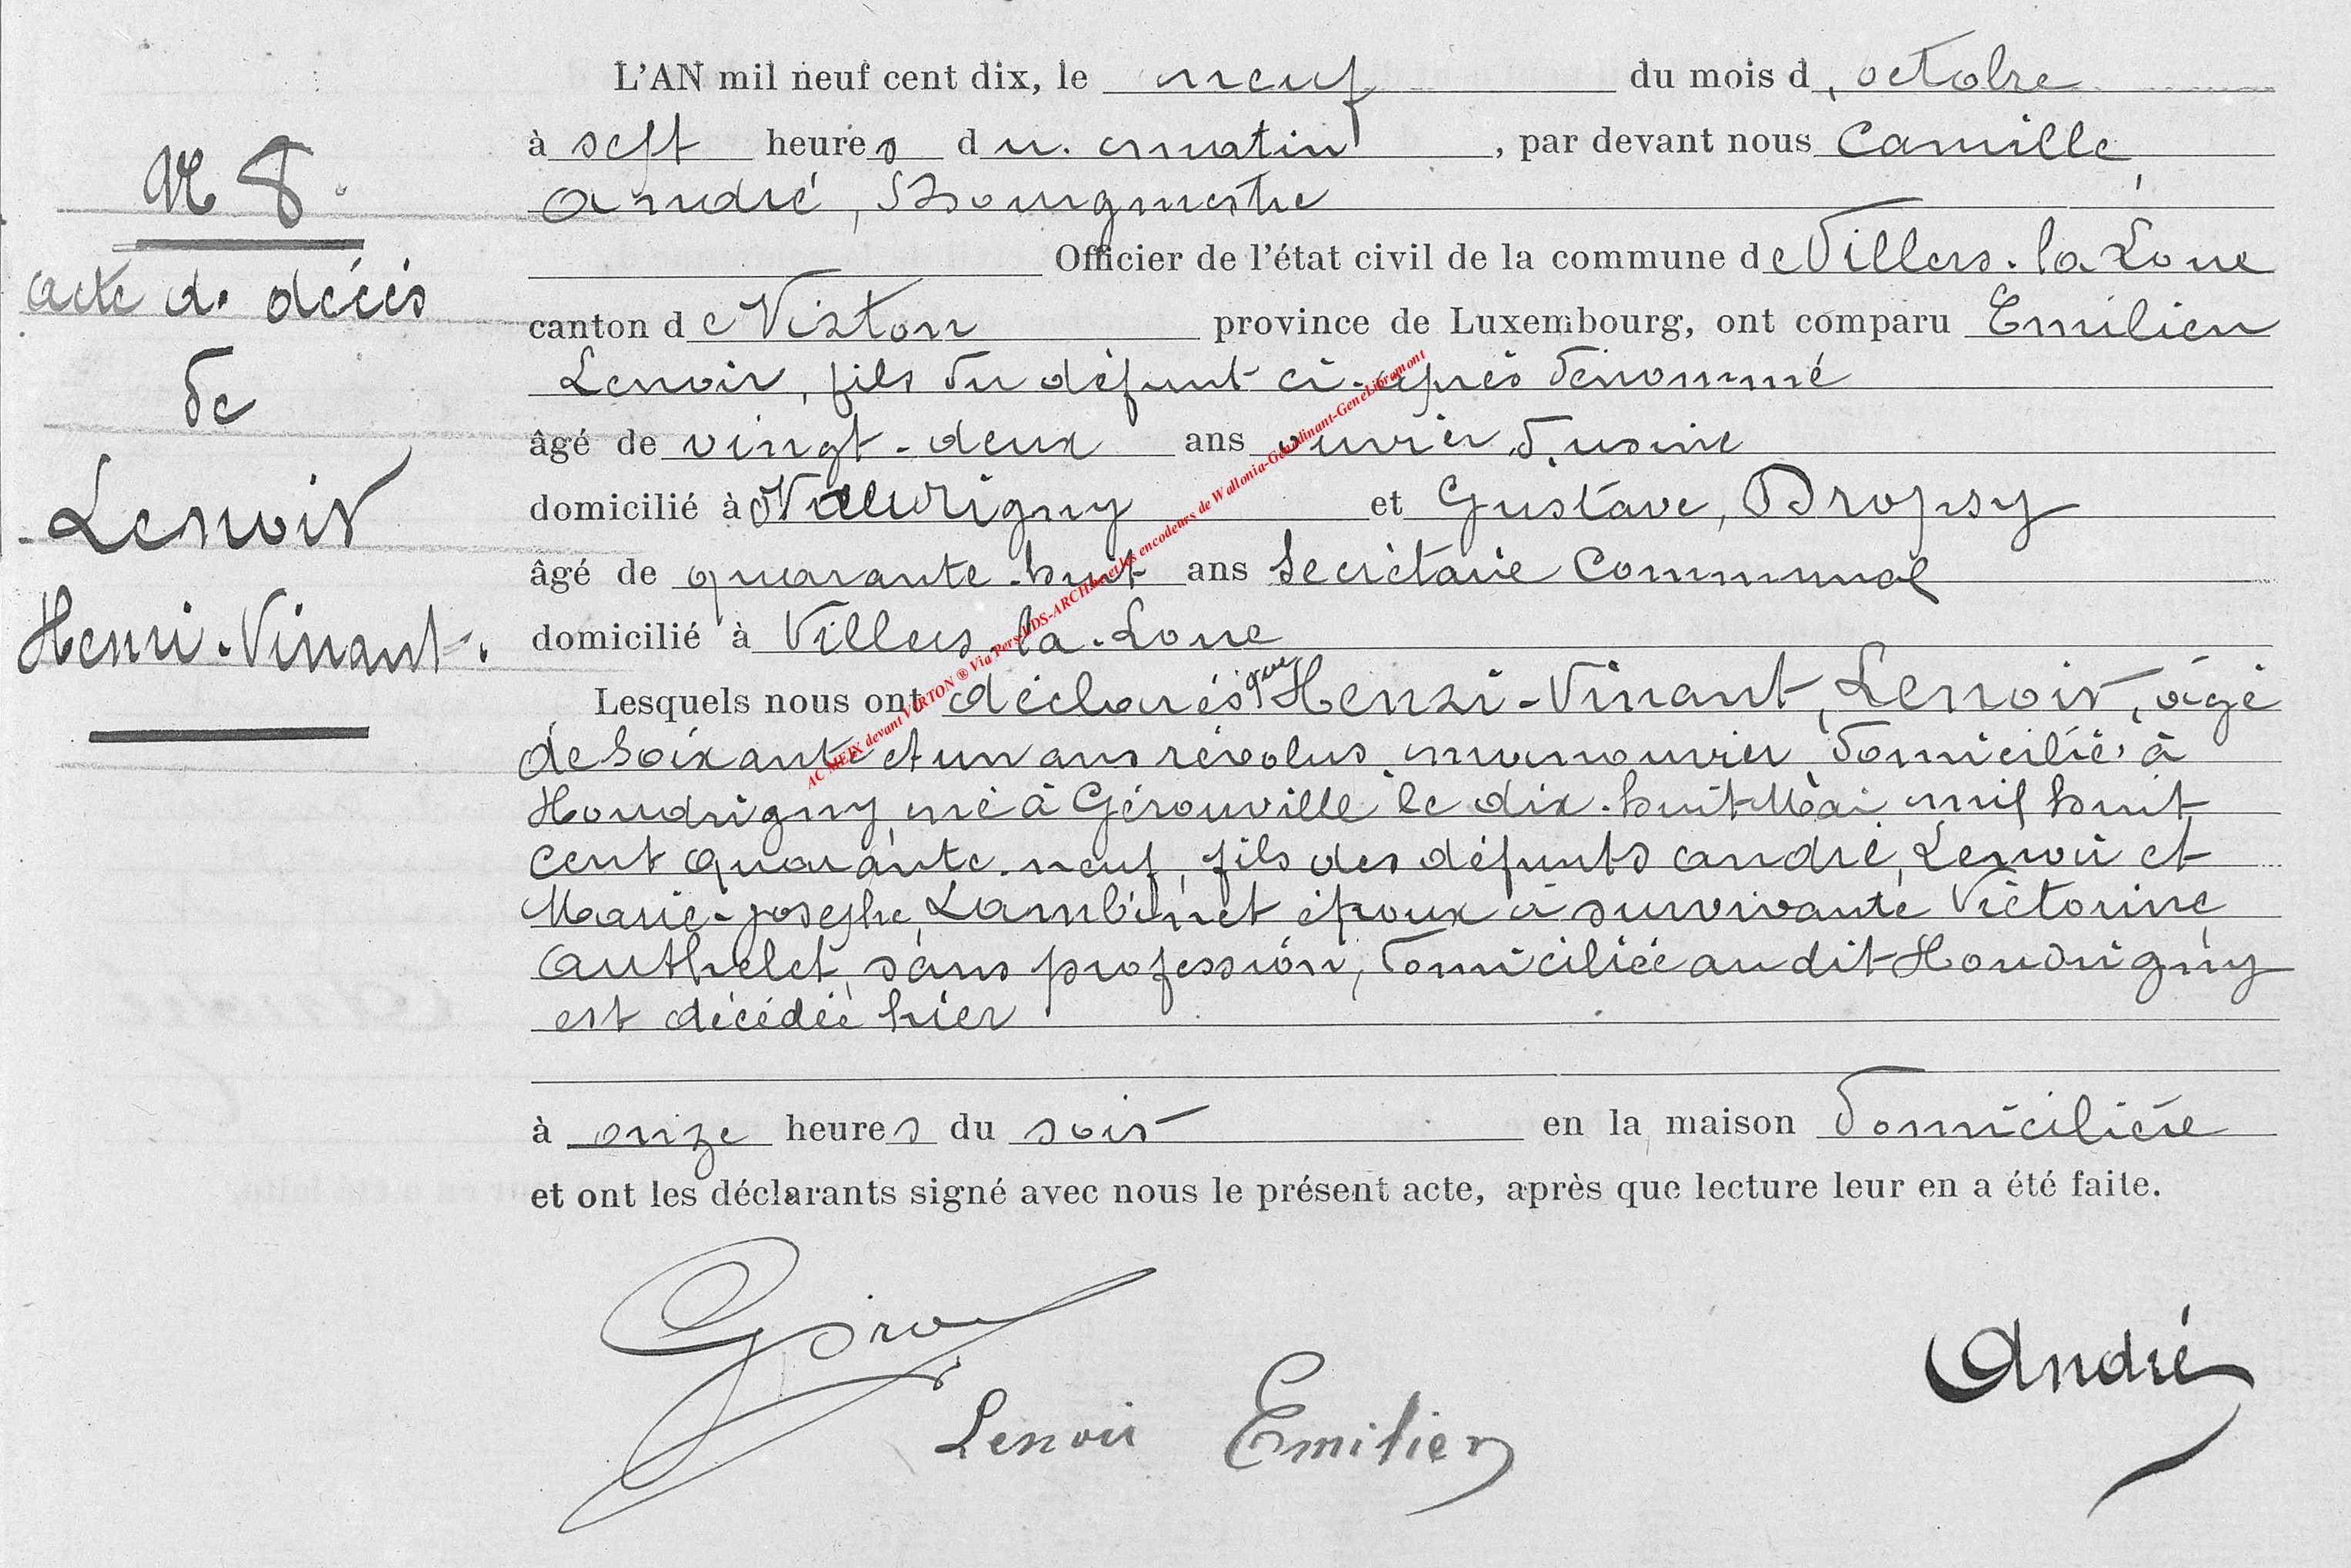 N° 8.
acte de décès
de
Lenoir
Henri-Vinant.
L'AN mil neuf cent dix, le neuf du mois d'octobre
à sept heures du matin, par devant nous Camille
André, Bourgmestre
Officier de l'état civil de la commune de Villers-la-Loue
canton de Virton province de Luxembourg, ont comparu Emilien
Lenoir, fils du défunt ci-après dénommé
âgé de vingt-deux ans ouvrier d'usine
domicilié à et Gustave, Dropsy
âgé de quarante-huit ans Secrétaire Communal
domicilié à Villers-la-Loue
Lesquels nous ont déclarés que Henri-Vinant, Lenoir, âgé
de soixante et un ans révolus, manouvrier, domicilié à
Houdrigny, né à Gérouville, le dix-huit Mai mil huit
cent quarante-neuf, fils des défunts André, Lenoir et
Marie-Josephe, Lambinet époux à survivante Victorine
Authelet, sans profession, domiciliée au dit Houdrigny
est décédée hier
à onze heures du soir en la maison domicilière
et ont les déclarants signé avec nous le présent acte, après que lecture leur en a été faite.
André
Lenoir Emilien
AC MEIX devant VIRTON ® Via Pers-LDS-ARCH.be et les encodeurs de Wallonia-Genedinant-GeneLibramont